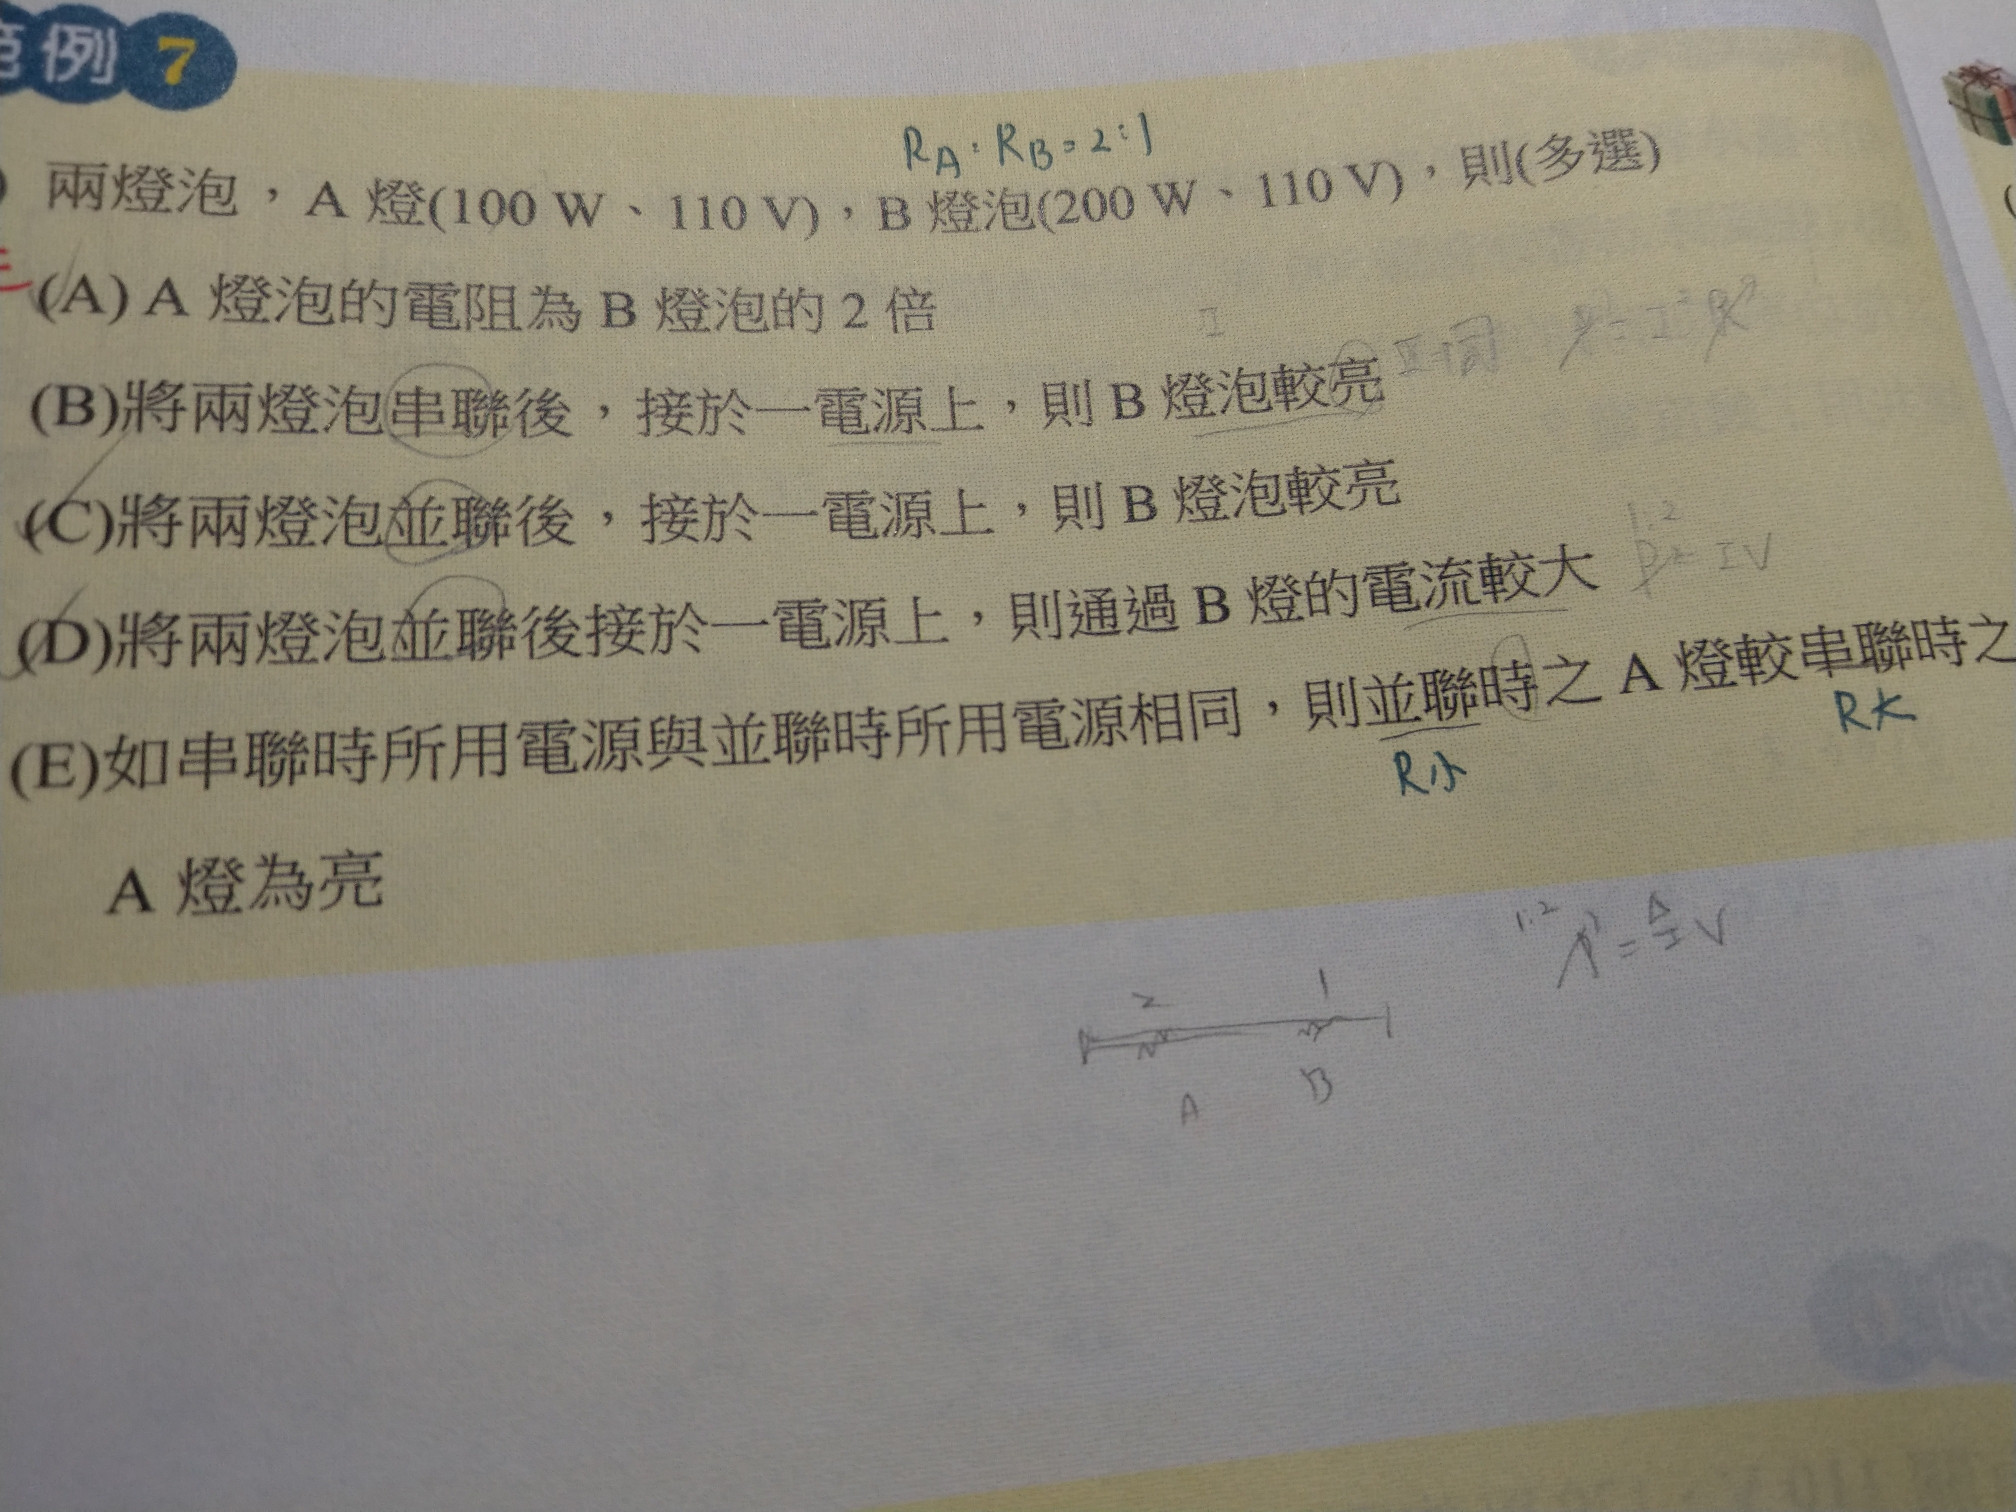 範例 7
R_A:R_B=2:1
兩燈泡，A 燈(100 W、110 V)，B 燈泡(200 W、110 V)，則(多選)
(A) A 燈泡的電阻為 B 燈泡的 2 倍
I
(B)將兩燈泡串聯後，接於一電源上，則 B 燈泡較亮
I同
(C)將兩燈泡並聯後，接於一電源上，則 B 燈泡較亮
1:2
IV
(D)將兩燈泡並聯後接於一電源上，則通過 B 燈的電流較大
(E)如串聯時所用電源與並聯時所用電源相同，則並聯時之 A 燈較串聯時之
R小
R大
A 燈為亮
1:2
2
1
A
B